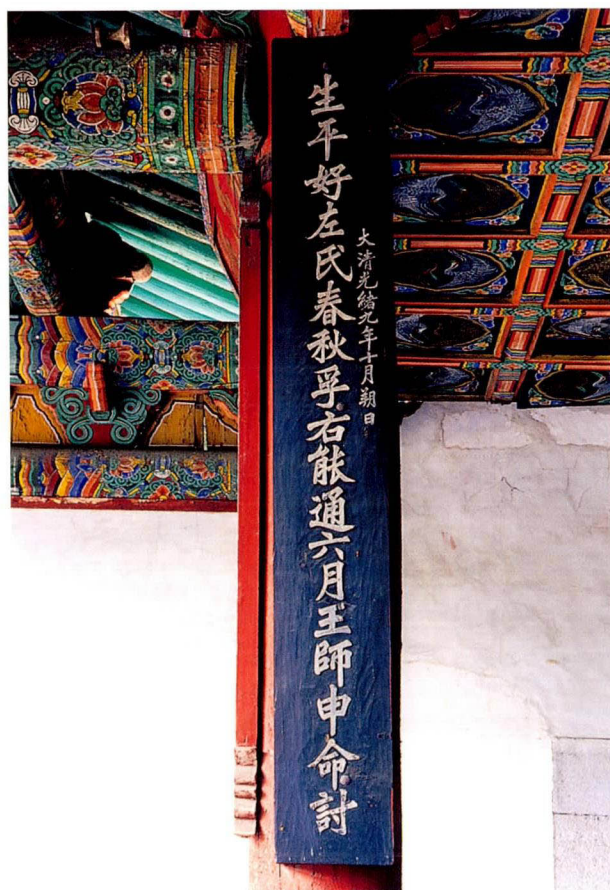 大清光緒九年十月朔日
生平好左氏春秋孚右能通六月王師申命討